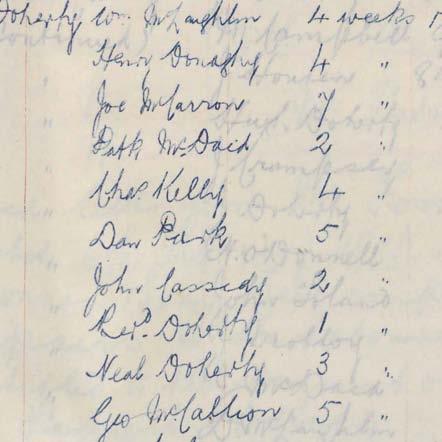 Doherty Wm McLaughlin 4 weeks
Henry Donaghy 4 "
Joe McCarron 7 "
Patk McDaid 2 "
Chas Kelly 4 "
Dan Park 5 "
John Cassidy 2 "
Bern^d Doherty 1 "
Neal Doherty 3 "
Geo McCallion 5 "